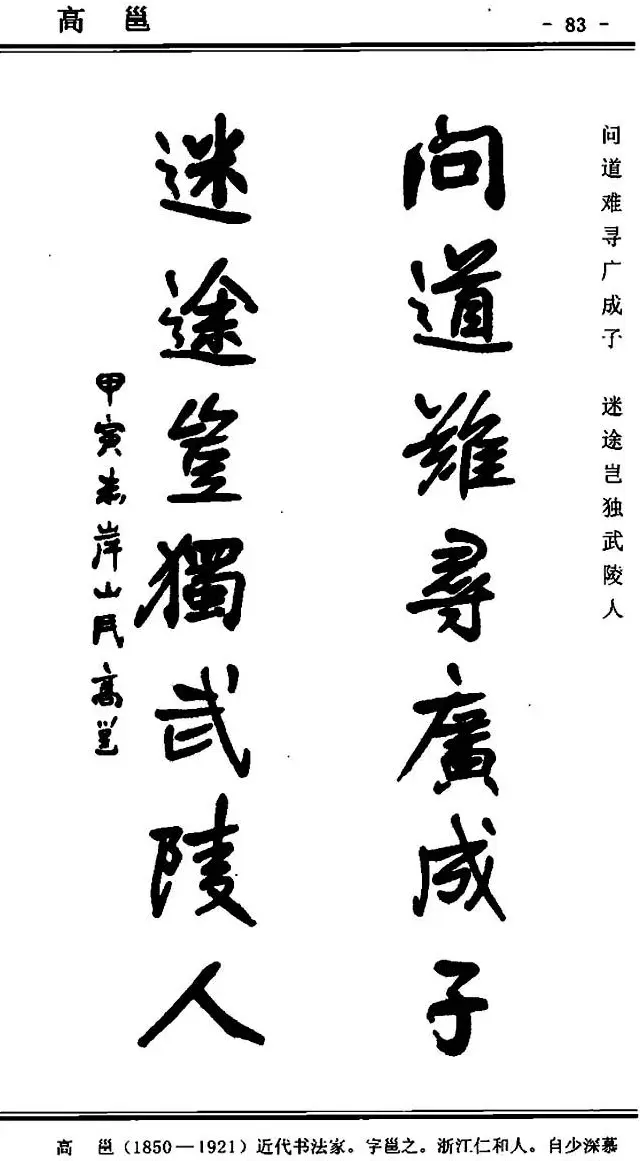 高　邕
- 83 -
问道难寻广成子　迷途岂独武陵人
問道難尋廣成子
迷途豈獨武陵人
甲寅赤岸山民高邕
高　邕(1850—1921)近代书法家。字邕之。浙江仁和人。自少深慕